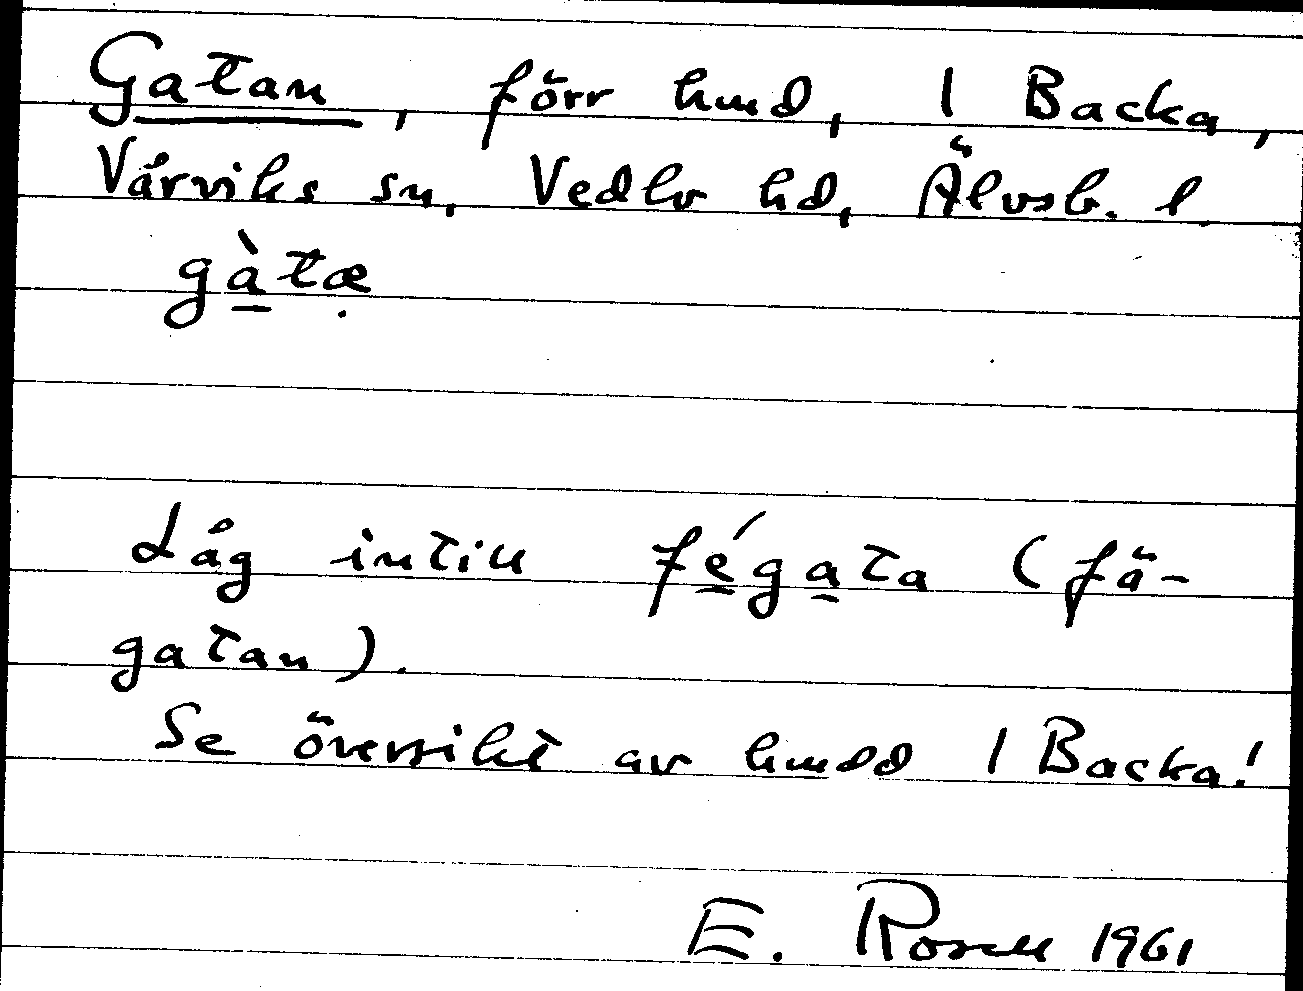 Gatan, förr hmd, 1 Backa,
Vårviks sn, Vedbo hd, Älvsb. l.
gàtæ
Låg intill fégata (fä-
gatan).
Se översikt av hmdd 1 Backa!
E. Rosell 1961